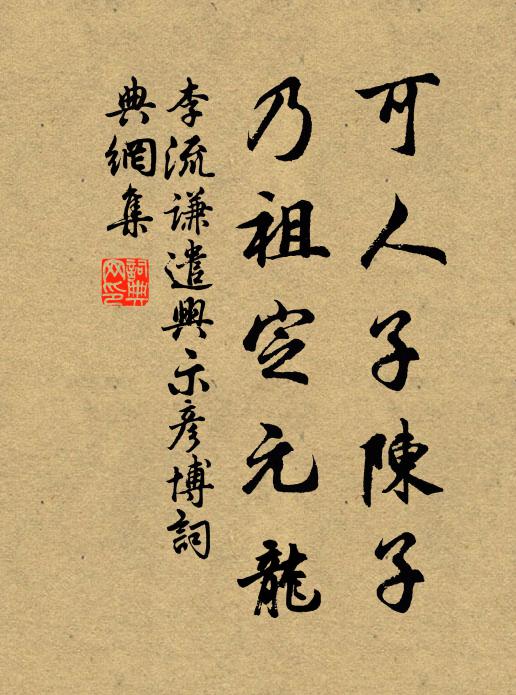 可人子陳子
乃祖定元龍
李流謙遣興示彥博詞
典網集
詞典
网印